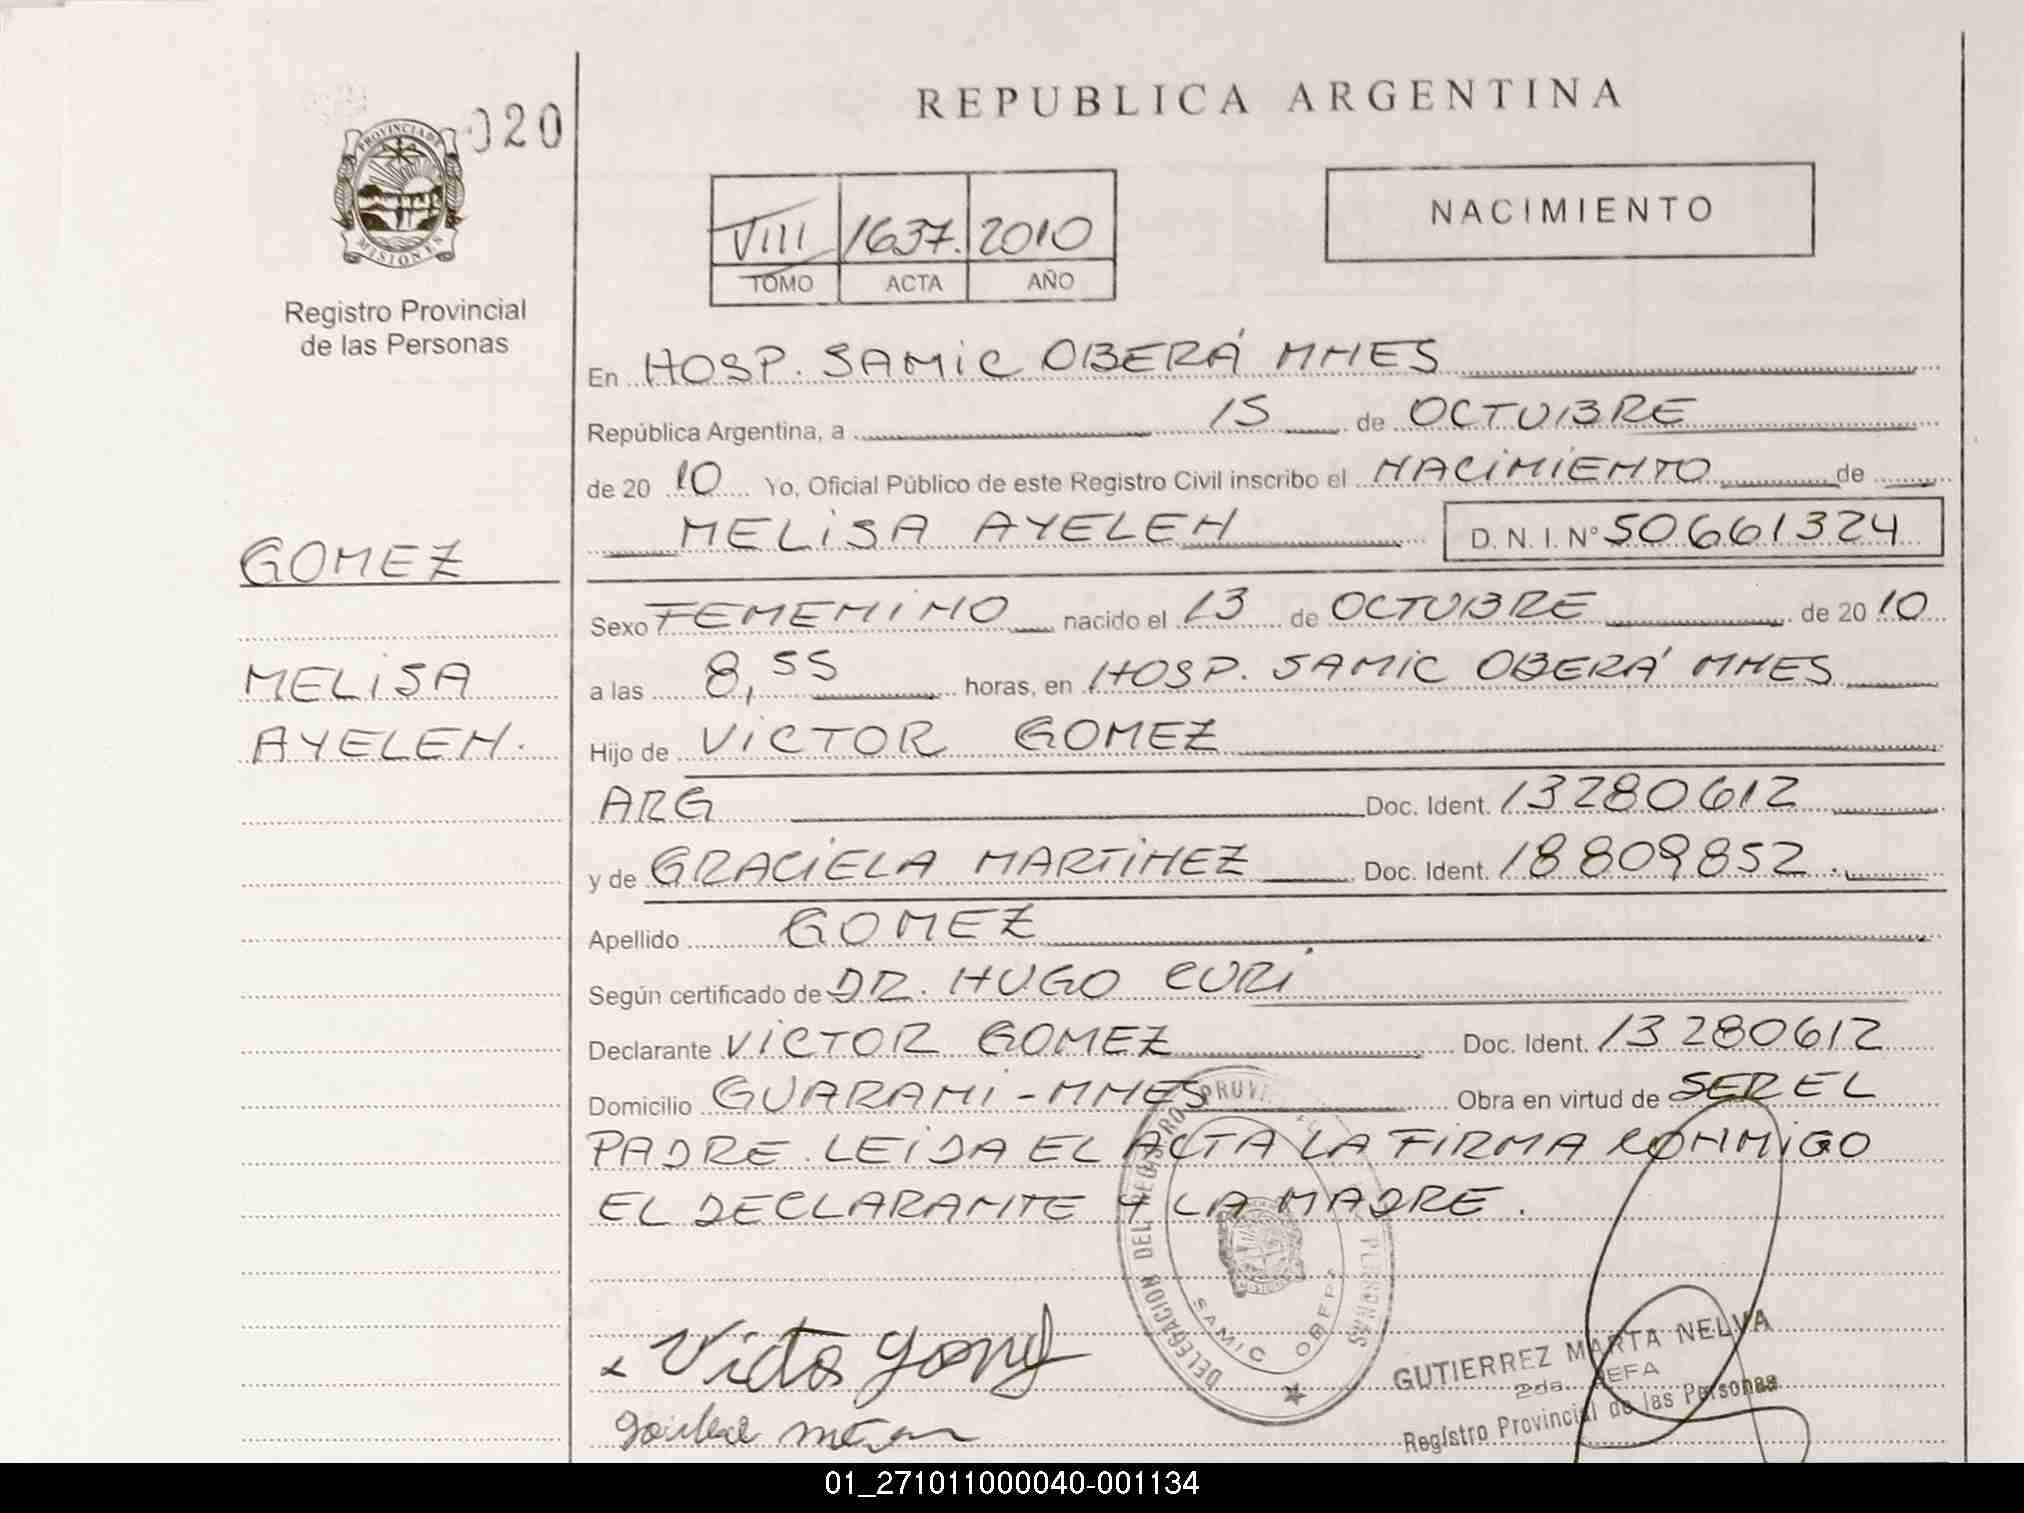 REPUBLICA ARGENTINA
020
PROVINCIA DE
MISIONES
Registro Provincial
de las Personas
VIII 1637. 2010
TOMO ACTA AÑO
NACIMIENTO
En HOSP. SAMIC OBERÁ MNES
República Argentina, a 15 de OCTUBRE
de 20 10 Yo, Oficial Público de este Registro Civil inscribo el NACIMIENTO de
MELISA AYELEN D. N. I. N° 50661324
GOMEZ
MELISA
AYELEN.
Sexo FEMENINO nacido el 13 de OCTUBRE de 20 10
a las 8,55 horas, en HOSP. SAMIC OBERÁ MNES
Hijo de VICTOR GOMEZ
ARG Doc. Ident. 13280612
y de GRACIELA MARTINEZ Doc. Ident. 18809852.
Apellido GOMEZ
Según certificado de DR. HUGO CURI
Declarante VICTOR GOMEZ Doc. Ident. 13280612
Domicilio GUARANI - MNES Obra en virtud de SER EL
PADRE. LEIDA EL ACTA LA FIRMA CONMIGO
EL DECLARANTE Y LA MADRE.
DELEGACION DEL REGISTRO
SAMIC OBERA
GUTIERREZ MARTA NELVA
2da. JEFA
Registro Provincial de las Personas
01_271011000040-001134